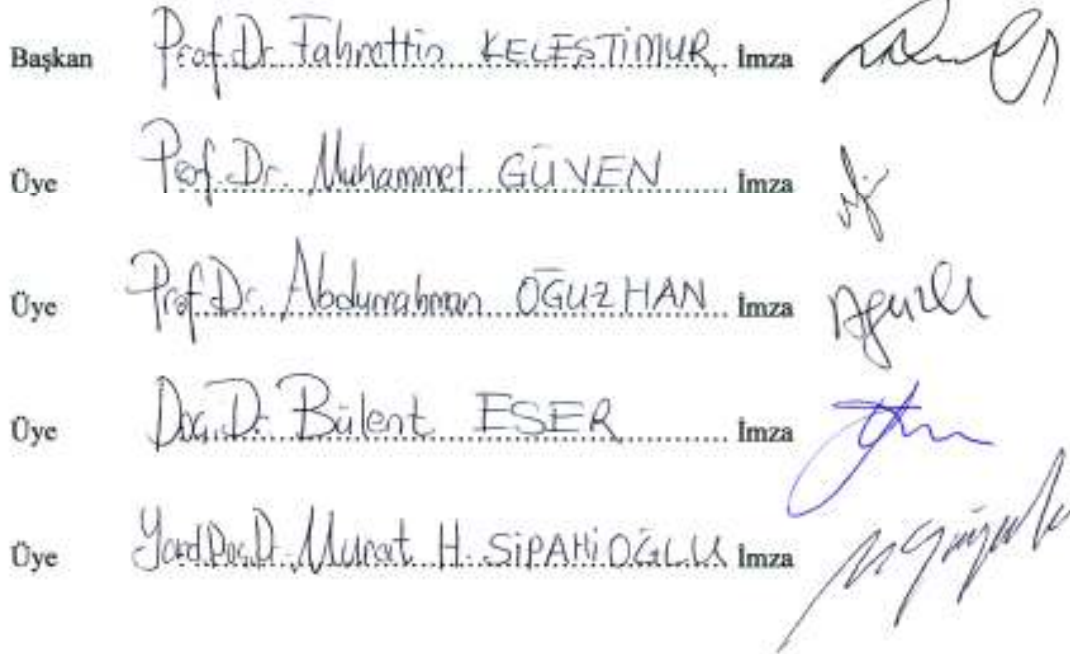 Başkan Prof. Dr. Fahrettin KELEŞTİMUR İmza
Üye Prof. Dr. Muhammet GÜVEN İmza
Üye Prof. Dr. Abdurrahman OĞUZHAN İmza
Üye Doç. Dr. Bülent ESER İmza
Üye Yard. Doç. Dr. Murat H. SİPAHİOĞLU İmza